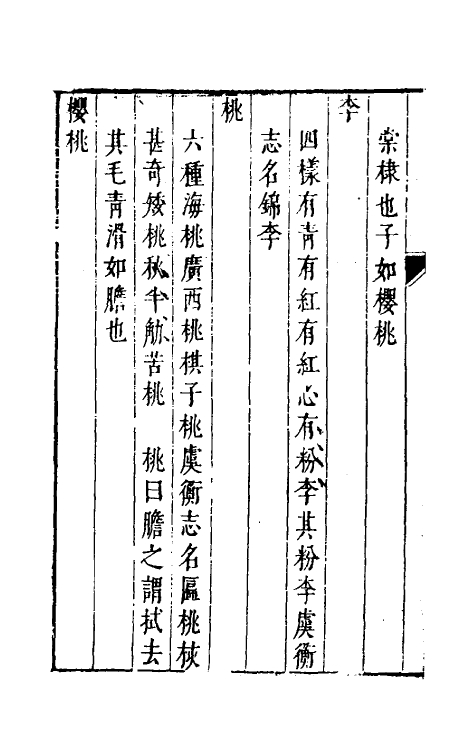 棠棣也子如櫻桃
李
四樣有青有紅有紅心有粉李其粉李虞衡
志名錦李
桃
六種海桃廣西桃棋子桃虞衡志名匾桃
甚奇矮桃秋千觔苦桃 桃曰膽之謂拭去
其毛青滑如膽也
櫻桃